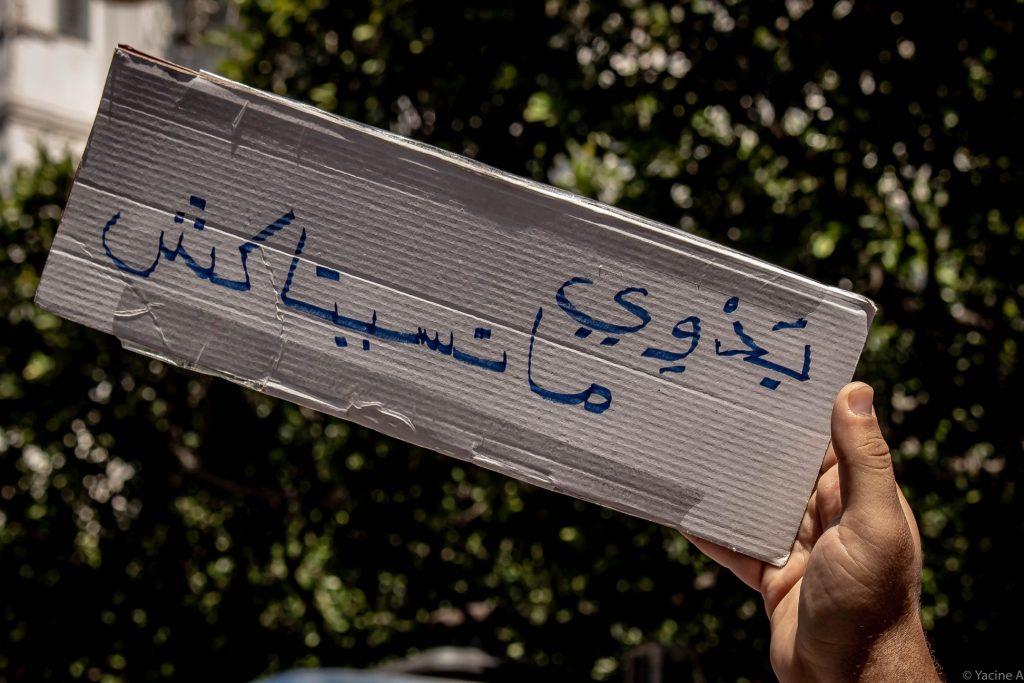 بَدْوِي
ما تسبيتاكش
© Yacine A